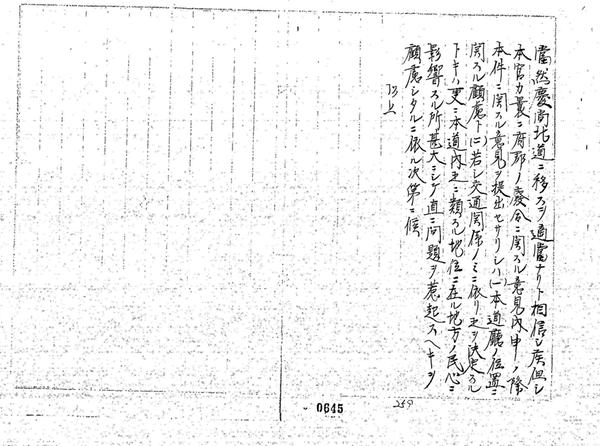 當然慶尚北道ニ移スヲ適當ナリト相信シ候但シ
本官カ曩ニ府郡ノ廢合ニ關スル意見内申ノ際
本件ニ關スル意見ヲ提出セサリシハ(一)本道廳ノ位置ニ
關スル顧慮ト(二)若シ交通關係ノミニ依リ之ヲ決定スル
トキハ更ニ本道内之ニ類スル地位ニ在ル地方ノ民心ニ
影響スル所甚大ニシテ直ニ問題ヲ惹起スヘキヲ
顧慮シタルニ依ル次第ニ候
以上
0645
259